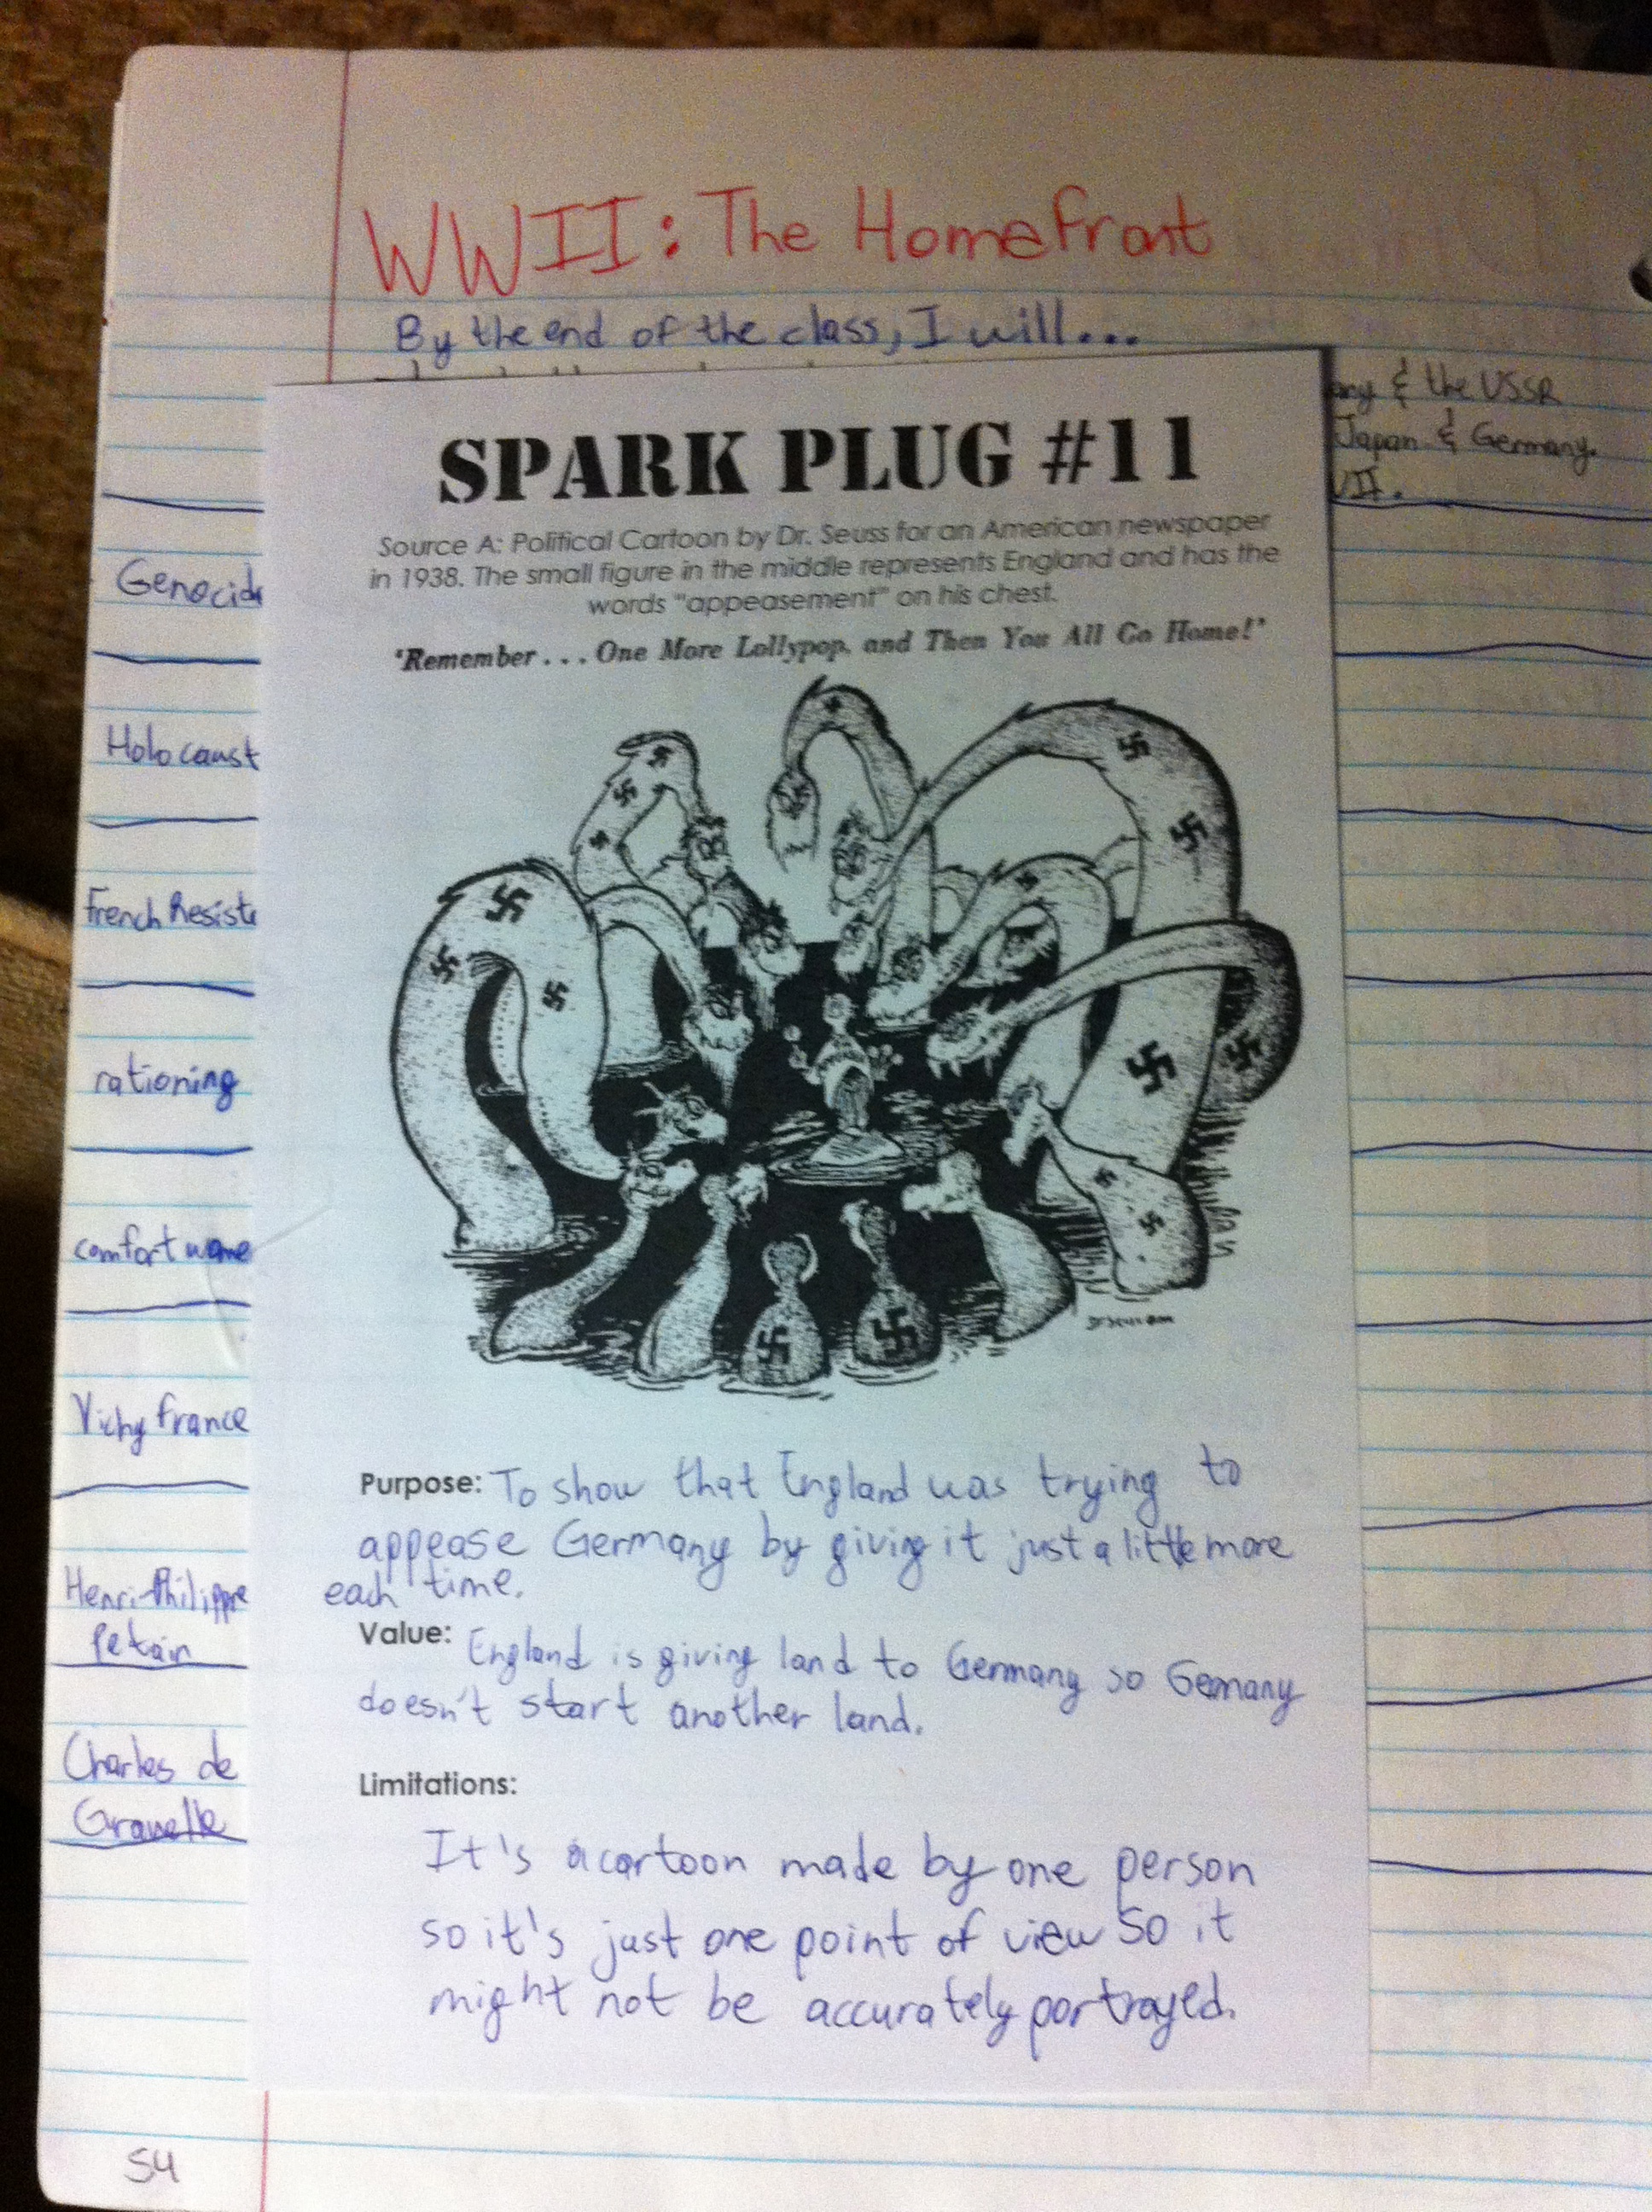 WWII: The Homefront
By the end of the class, I will...
& the USSR
Japan & Germany.
SPARK PLUG #11
Source A: Political Cartoon by Dr. Seuss for an American newspaper
in 1938. The small figure in the middle represents England and has the
words "appeasement" on his chest.
'Remember... One More Lollypop, and Then You All Go Home!'
Genocide
Holocaust
French Resist
rationing
comfort wome
Vichy France
Henri-Philippe
Petain
Charles de
Dr Seuss
Purpose: To show that England was trying to
appease Germany by giving it just a little more
each time.
Value: England is giving land to Germany so Gemany
doesn't start another land.
Limitations:
It's a cartoon made by one person
so it's just one point of view so it
might not be accurately portrayed.
54